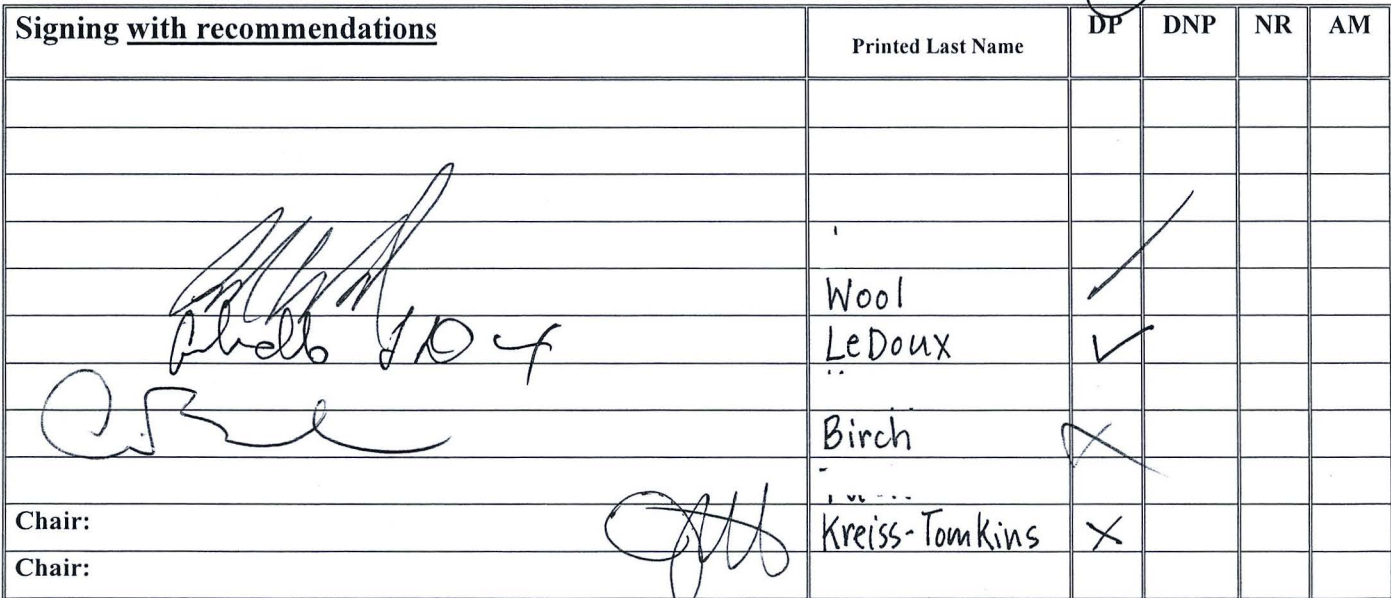 Signing with recommendations Printed Last Name DP DNP NR AM
Wool ✓
LeDoux ✓
Birch X
Chair: Kreiss-Tomkins X
Chair: